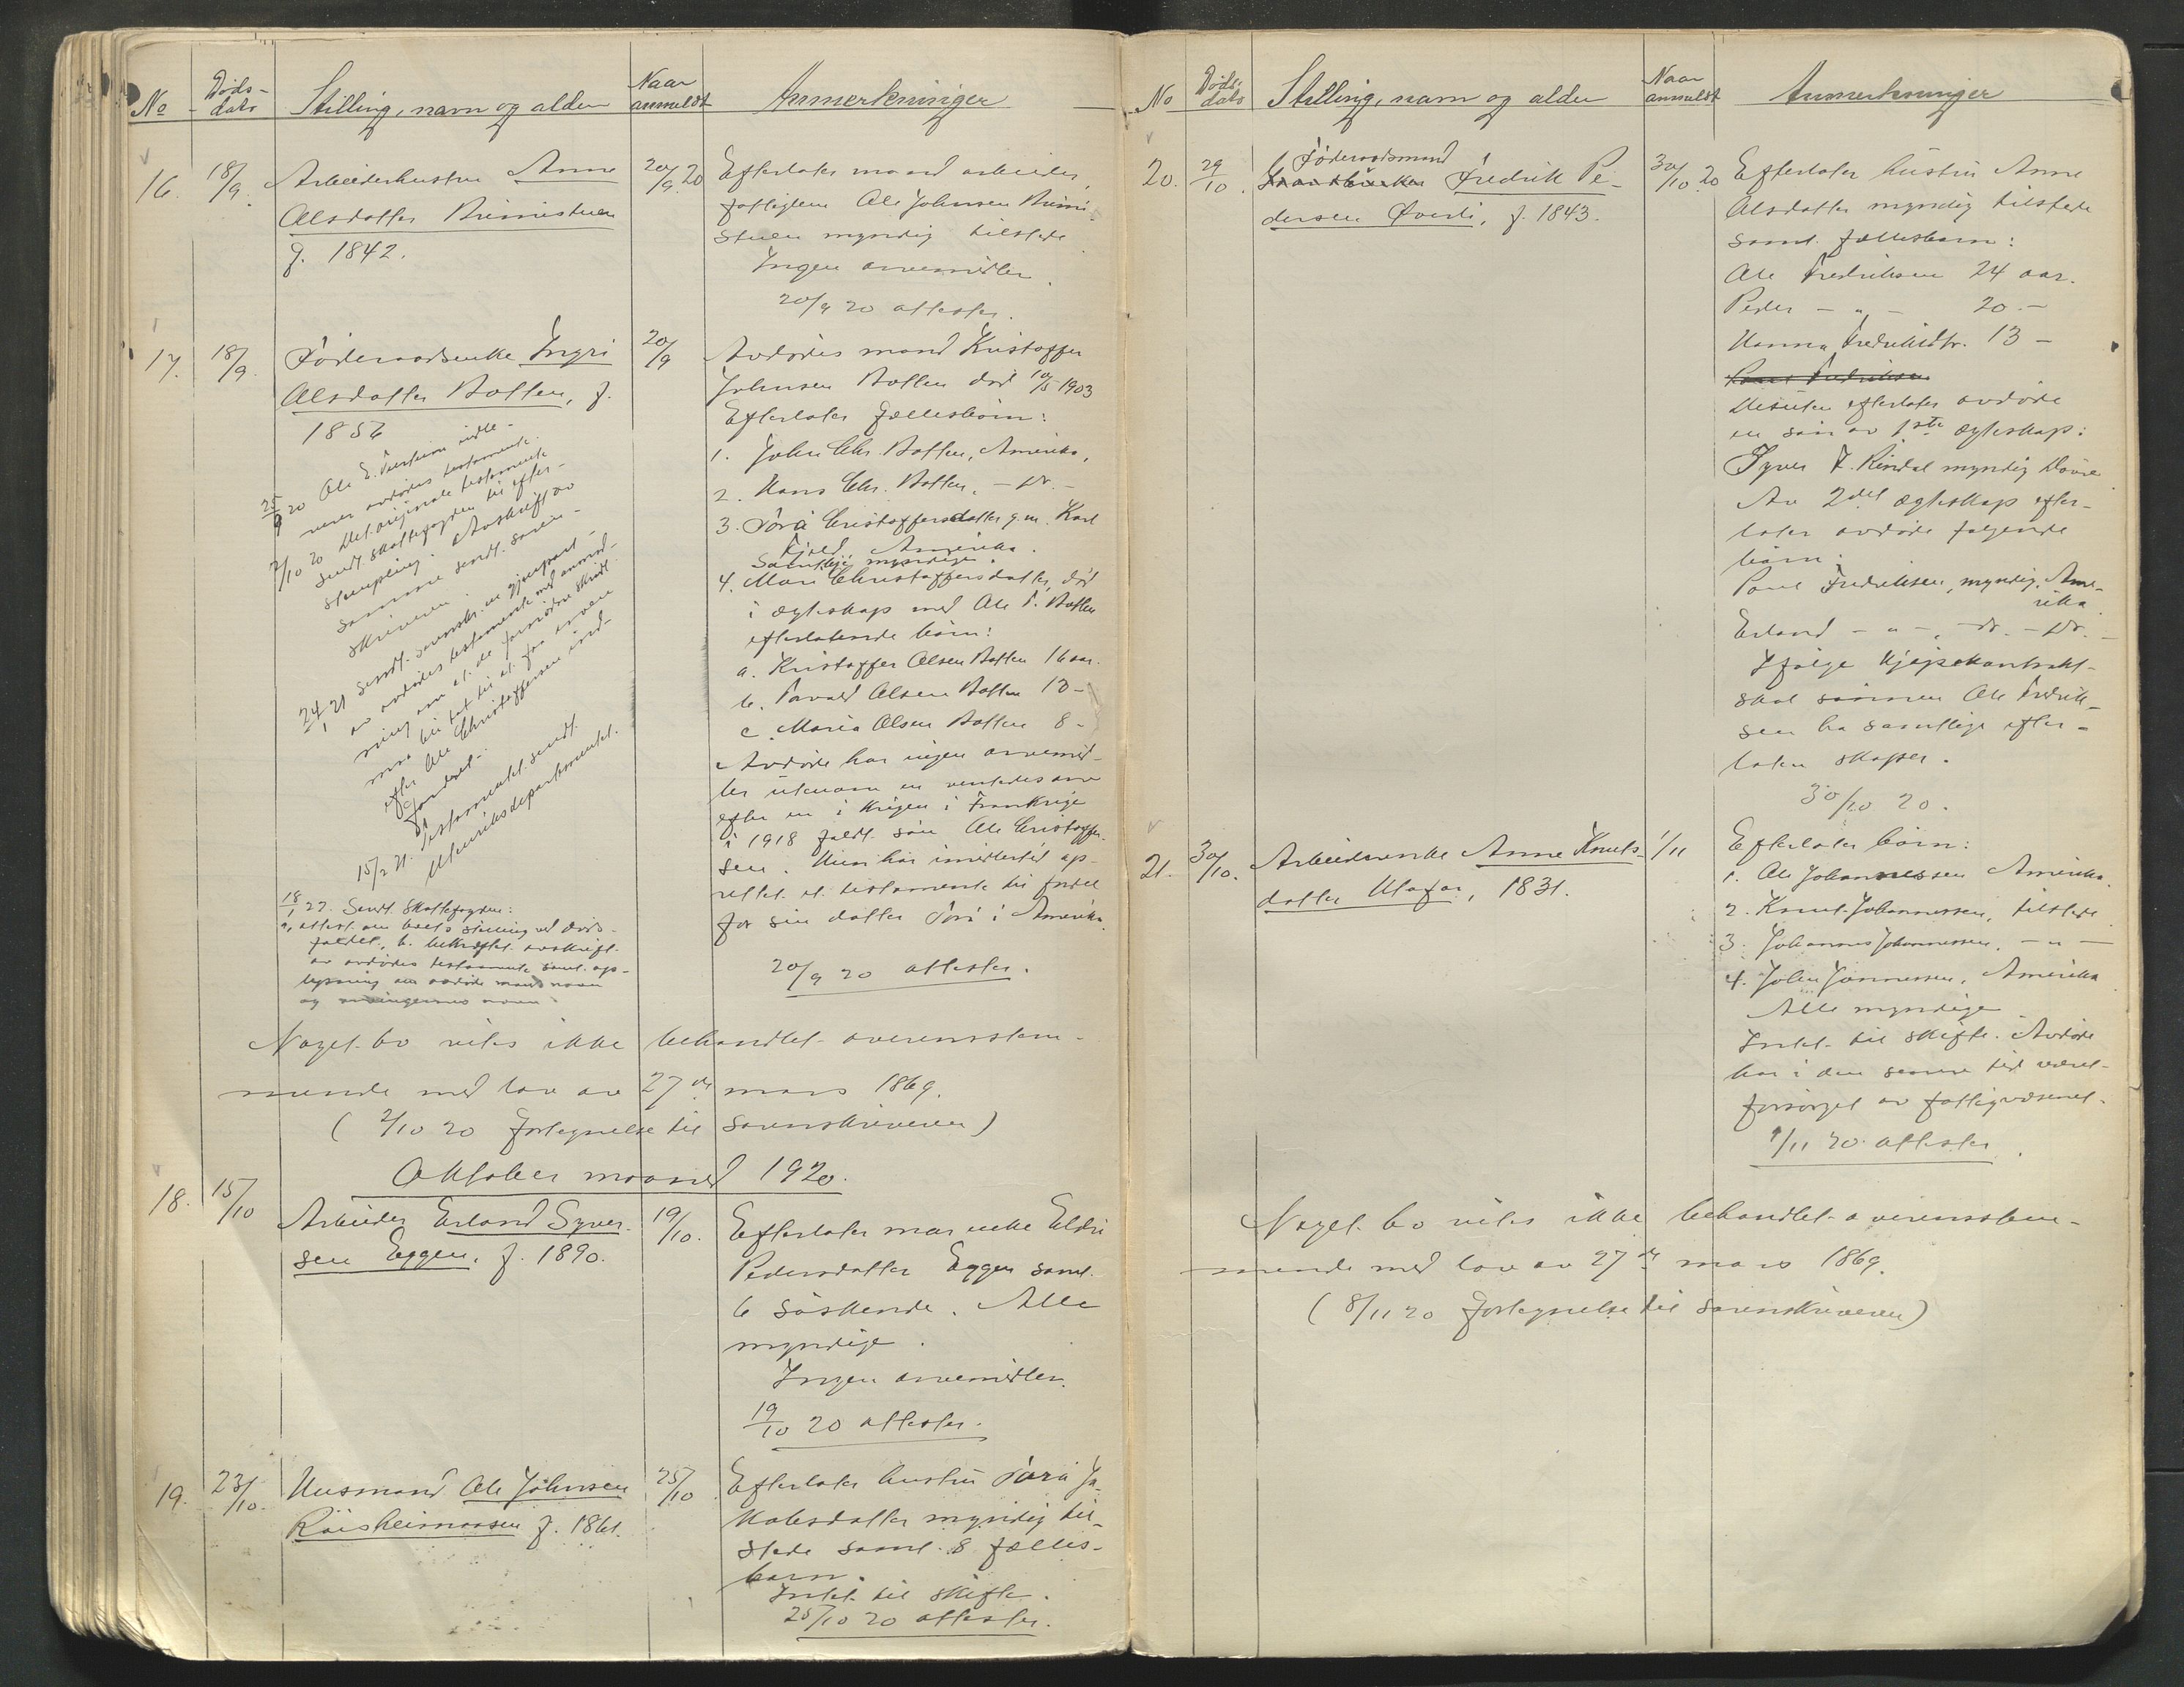 No
Døds-
dato
Stilling, navn og alder
Naar
anmeldt
Anmerkninger
16.
18/9.
Arbeiderhustru Anne
Olsdatter Brimistuen
f. 1842.
20/9 20
Efterlater mand arbeider
Ole Johnsen Brimi-
stuen myndig tilstede
Ingen arvemidler.
20/9 20 attester.
17.
18/9.
Föderaadsenke Ingri
Olsdatter Botten, f.
1856
20/9
Avdødes mand Kristoffer
Johnsen Botten död 1903
Efterlater fællesbörn:
1. John Chr. Botten, Amerika,
2. Hans Chr. Botten, - Do. -
3. Törö Cristoffersdatter g.m. Karl
Amerika.
Samtlige myndige.
4. Mari Christoffersdatter, död
i ægteskap med Ole P. Botten
efterlatende börn:
a. Kristoffer Olsen Botten 16 aar.
b. Torvald Olsen Botten 13 -
c. Maria Olsen Botten 8 -
Avdöde har ingen arvemid-
ler utenom en ventedes arv
efter en i krigen i Frankrige
i 1918 faldt sön Ole Cristoffer-
sen. Hun har imidlertid op-
rettet et testamente til fordel
for sin datter Törö i Amerika.
20/9 20 attester.
25/9 20 Ole E. indle-
verer avdödes testamente.
2/10 20 Det originale testamente
sendt skattefogden til efter-
stempling. Avskrift av
samme sendt soren-
skriveren.
24/1 21 sendt sorenskr. en gjenpart
av avdödes testamente med anmod-
ning om at de fornödne skridt
maa bli tat til at faa arven
efter Ole Christoffersen ind-
fordret.
15/2 21. Testamentet sendt
Utenriksdepartementet.
18/1 27. Sendt skattefogden:
a, attest om boets stilling ved döds-
faldet, b. bekræftet avskrift
av avdödes testamente samt op-
lysning om avdöde mands navn
og arvingernes navn.
Noget bo vites ikke behandlet overensstem-
mende med lov av 27de mars 1869.
(2/10 20 fortegnelse til sorenskriveren)
Oktober maaned 1920.
18.
15/10
Arbeider Erland Syver-
sen Eggen, f. 1890.
19/10.
Efterlater mor enke Eldri
Pedersdatter Eggen samt
6 söskende. Alle
myndige.
Ingen arvemidler.
19/10 20 attester.
19.
23/10.
Husmand Ole Johnsen
Röisheimmoen f. 1861.
25/10
Efterlater hustru Törö Ja-
kobsdatter myndig til-
stede samt 8 fælles-
barn.
Intet til skifte.
25/10 20 attester.
No
Döds
dato
Stilling, navn og alder
Naar
anmeldt
Anmerkninger
20.
29/10.
Föderaadsmand
Fredrik Pe-
dersen Øverli, f. 1843.
30/10 20
Efterlater hustru Anne
Olsdatter myndig tilstede
samt fællesbarn:
Ole Fredriksen 24 aar.
Peder - " - 20 -
Hanna Fredriksdtr. 13 -
Paul Fredriksen
Desuten efterlater avdöde
en sön av 1ste ægteskap:
Syver F. Rindal myndig Dovre
Av 2det ægteskap efter-
later avdöde følgende
börn:
Poul Fredriksen, myndig, Ame-
rika
Erland - " -, - Do. - Do. -
Ifölge kjøpekontrakt
skal sönnen Ole Fredrik-
sen ha samtlige efter-
laten skaper.
30/10 20.
21.
30/10.
Arbeiderenke Anne Knuts-
datter Utafor, 1831.
1/11
Efterlater börn:
1. Ole Johannessen Amerika.
2. Knut Johannessen, tilstede
3. Johannes Johannessen, - " -
4. John Johannessen, Amerika
Alle myndige
Intet til skifte. Avdöde
har i den senere tid været
forsörget av fattigvæsenet.
1/11 20 attester.
Noget bo vites ikke behandlet overensstem-
mende med lov av 27de mars 1869.
(8/11 20 fortegnelse til sorenskriveren)